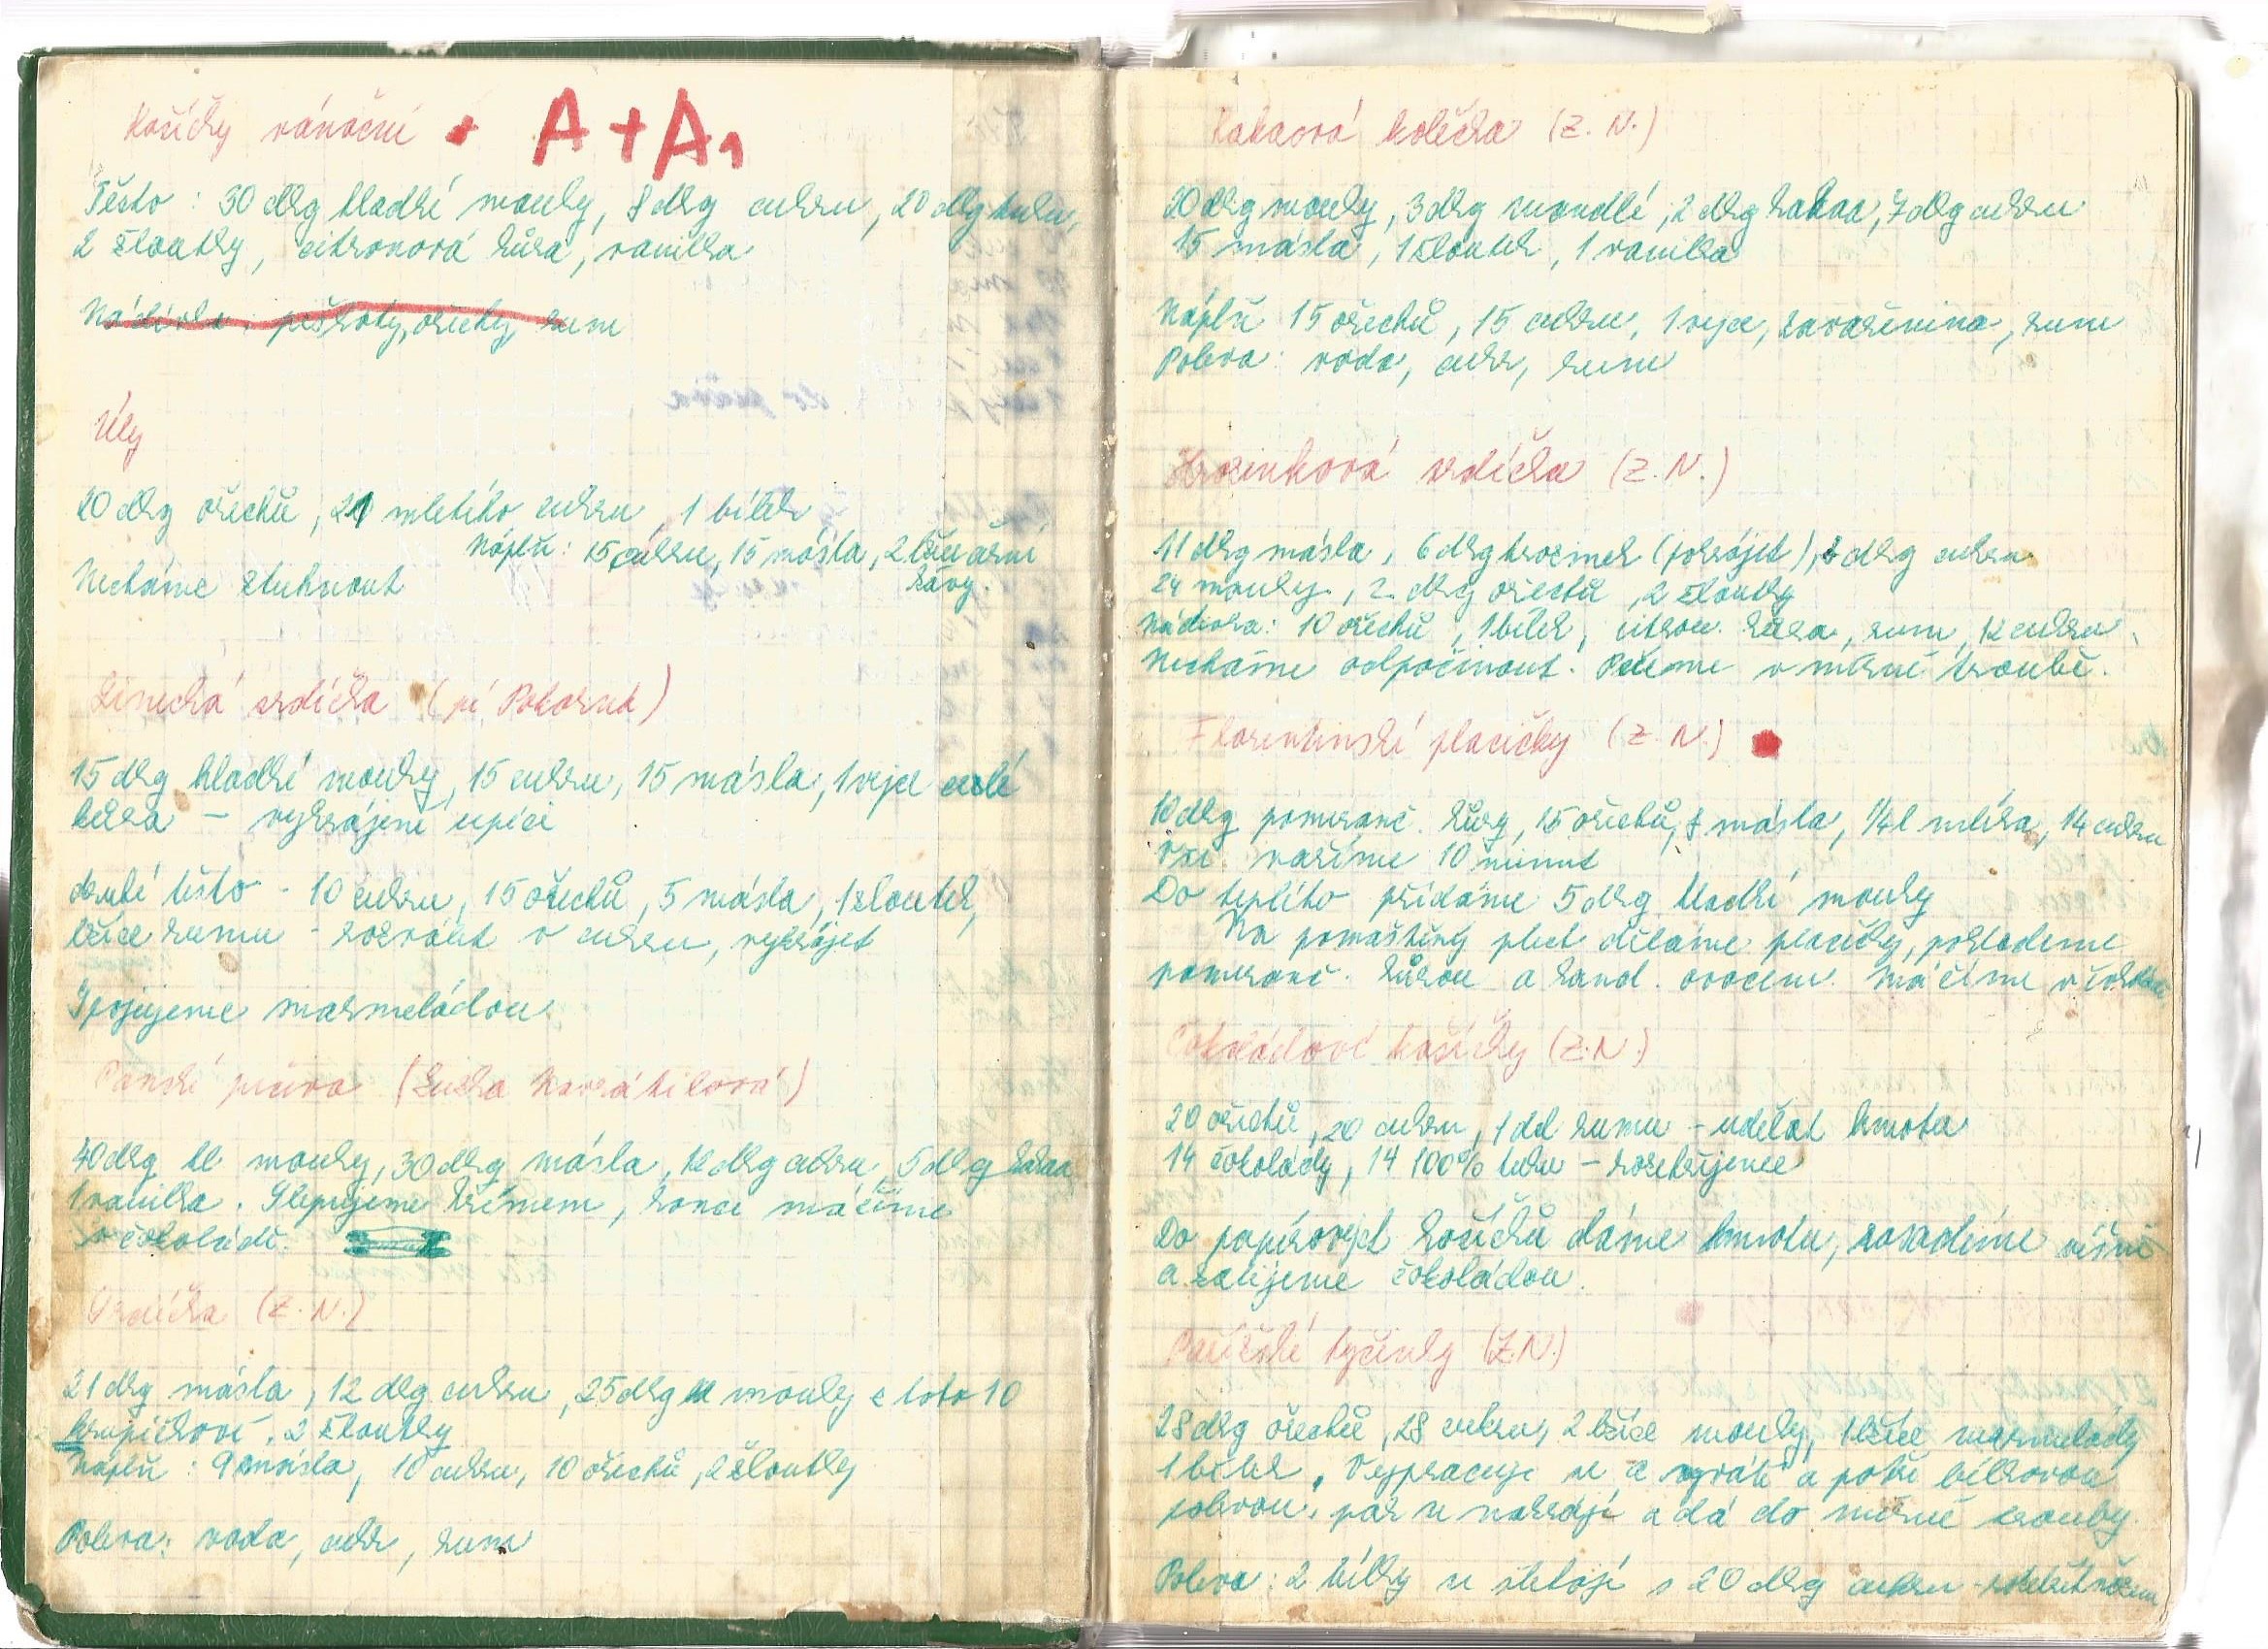 Košíčky vánoční • A + A1
Těsto : 30 dkg hladké mouky, 8 dkg cukru, 20 dkg tuku,
2 žloutky, citronová kůra, vanilka
Nádivka : piškoty, ořechy, rum
Úly
20 dkg ořechů, 21 mletého cukru, 1 bílek
Náplň : 15 cukru, 15 másla, 2 lžíce černé
Necháme ztuhnout
kávy.
Linecká srdíčka (pí Pokorná)
15 dkg hladké mouky, 15 cukru, 15 másla, 1 vejce celé
kůra – vykrájené upéci
druhé těsto - 10 cukru, 15 ořechů, 5 másla, 1 žloutek,
lžíce rumu - rozválet v cukru, vykrájet
Spojujeme marmeládou
Panské pečivo (Lidka Navrátilová)
40 dkg hl mouky, 30 dkg másla, 12 dkg cukru, 5 dkg kakaa
1 vanilka. Slepujeme krémem, konce máčíme
v čokoládě.
Srdíčka (Z. N.)
21 dkg másla, 12 dkg cukru, 25 dkg hl mouky z toho 10
krupičkové, 2 žloutky
Náplň : 9 másla, 10 cukru, 10 ořechů, 2 žloutky
Poleva : voda, cukr, rum
Kakaová kolečka (Z. N.)
20 dkg mouky, 3 dkg mandlí, 2 dkg kakaa, 7 dkg cukru
15 másla, 1 žloutek, 1 vanilka
Náplň 15 ořechů, 15 cukru, 1 vejce, zavařenina, rum
Poleva : voda, cukr, rum
Hrozinková srdíčka (Z. N.)
11 dkg másla, 6 dkg hrozinek (pokrájet), 8 dkg cukru
24 mouky, 2 dkg ořechů, 2 žloutky
Nádivka : 10 ořechů, 1 bílek, citron. kůra, rum, 12 cukru.
Necháme odpočinout. Pečeme v mírné troubě.
Florentinské placičky (Z. N.)
10 dkg pomeranč. kůry, 15 ořechů, 8 másla, 1/4 l mléka, 14 cukru
Vše vaříme 10 minut
Do teplého přidáme 5 dkg hladké mouky
Na pomaštěný plech děláme placičky, poklademe
pomeranč. kůrou a kand. ovocem. Máčíme v čokoládě
Čokoládové košíčky (Z.N.)
20 ořechů, 20 cukru, 1 dcl rumu – udělat hmotu
14 čokolády, 14 100% tuku – rozehřejeme
Do papírových košíčků dáme hmotu, zasadíme višni
a zalijeme čokoládou.
Pařížské tyčinky (Z.N.)
28 dkg ořechů, 28 cukru, 2 lžíce mouky, 1 lžíce marmelády
1 bílek. Vypracuje se a vyválí a potře bílkovou
polevou, pak se nakrájí a dá do mírné trouby.
Poleva : 2 bílky se šlehají s 20 dkg cukru -